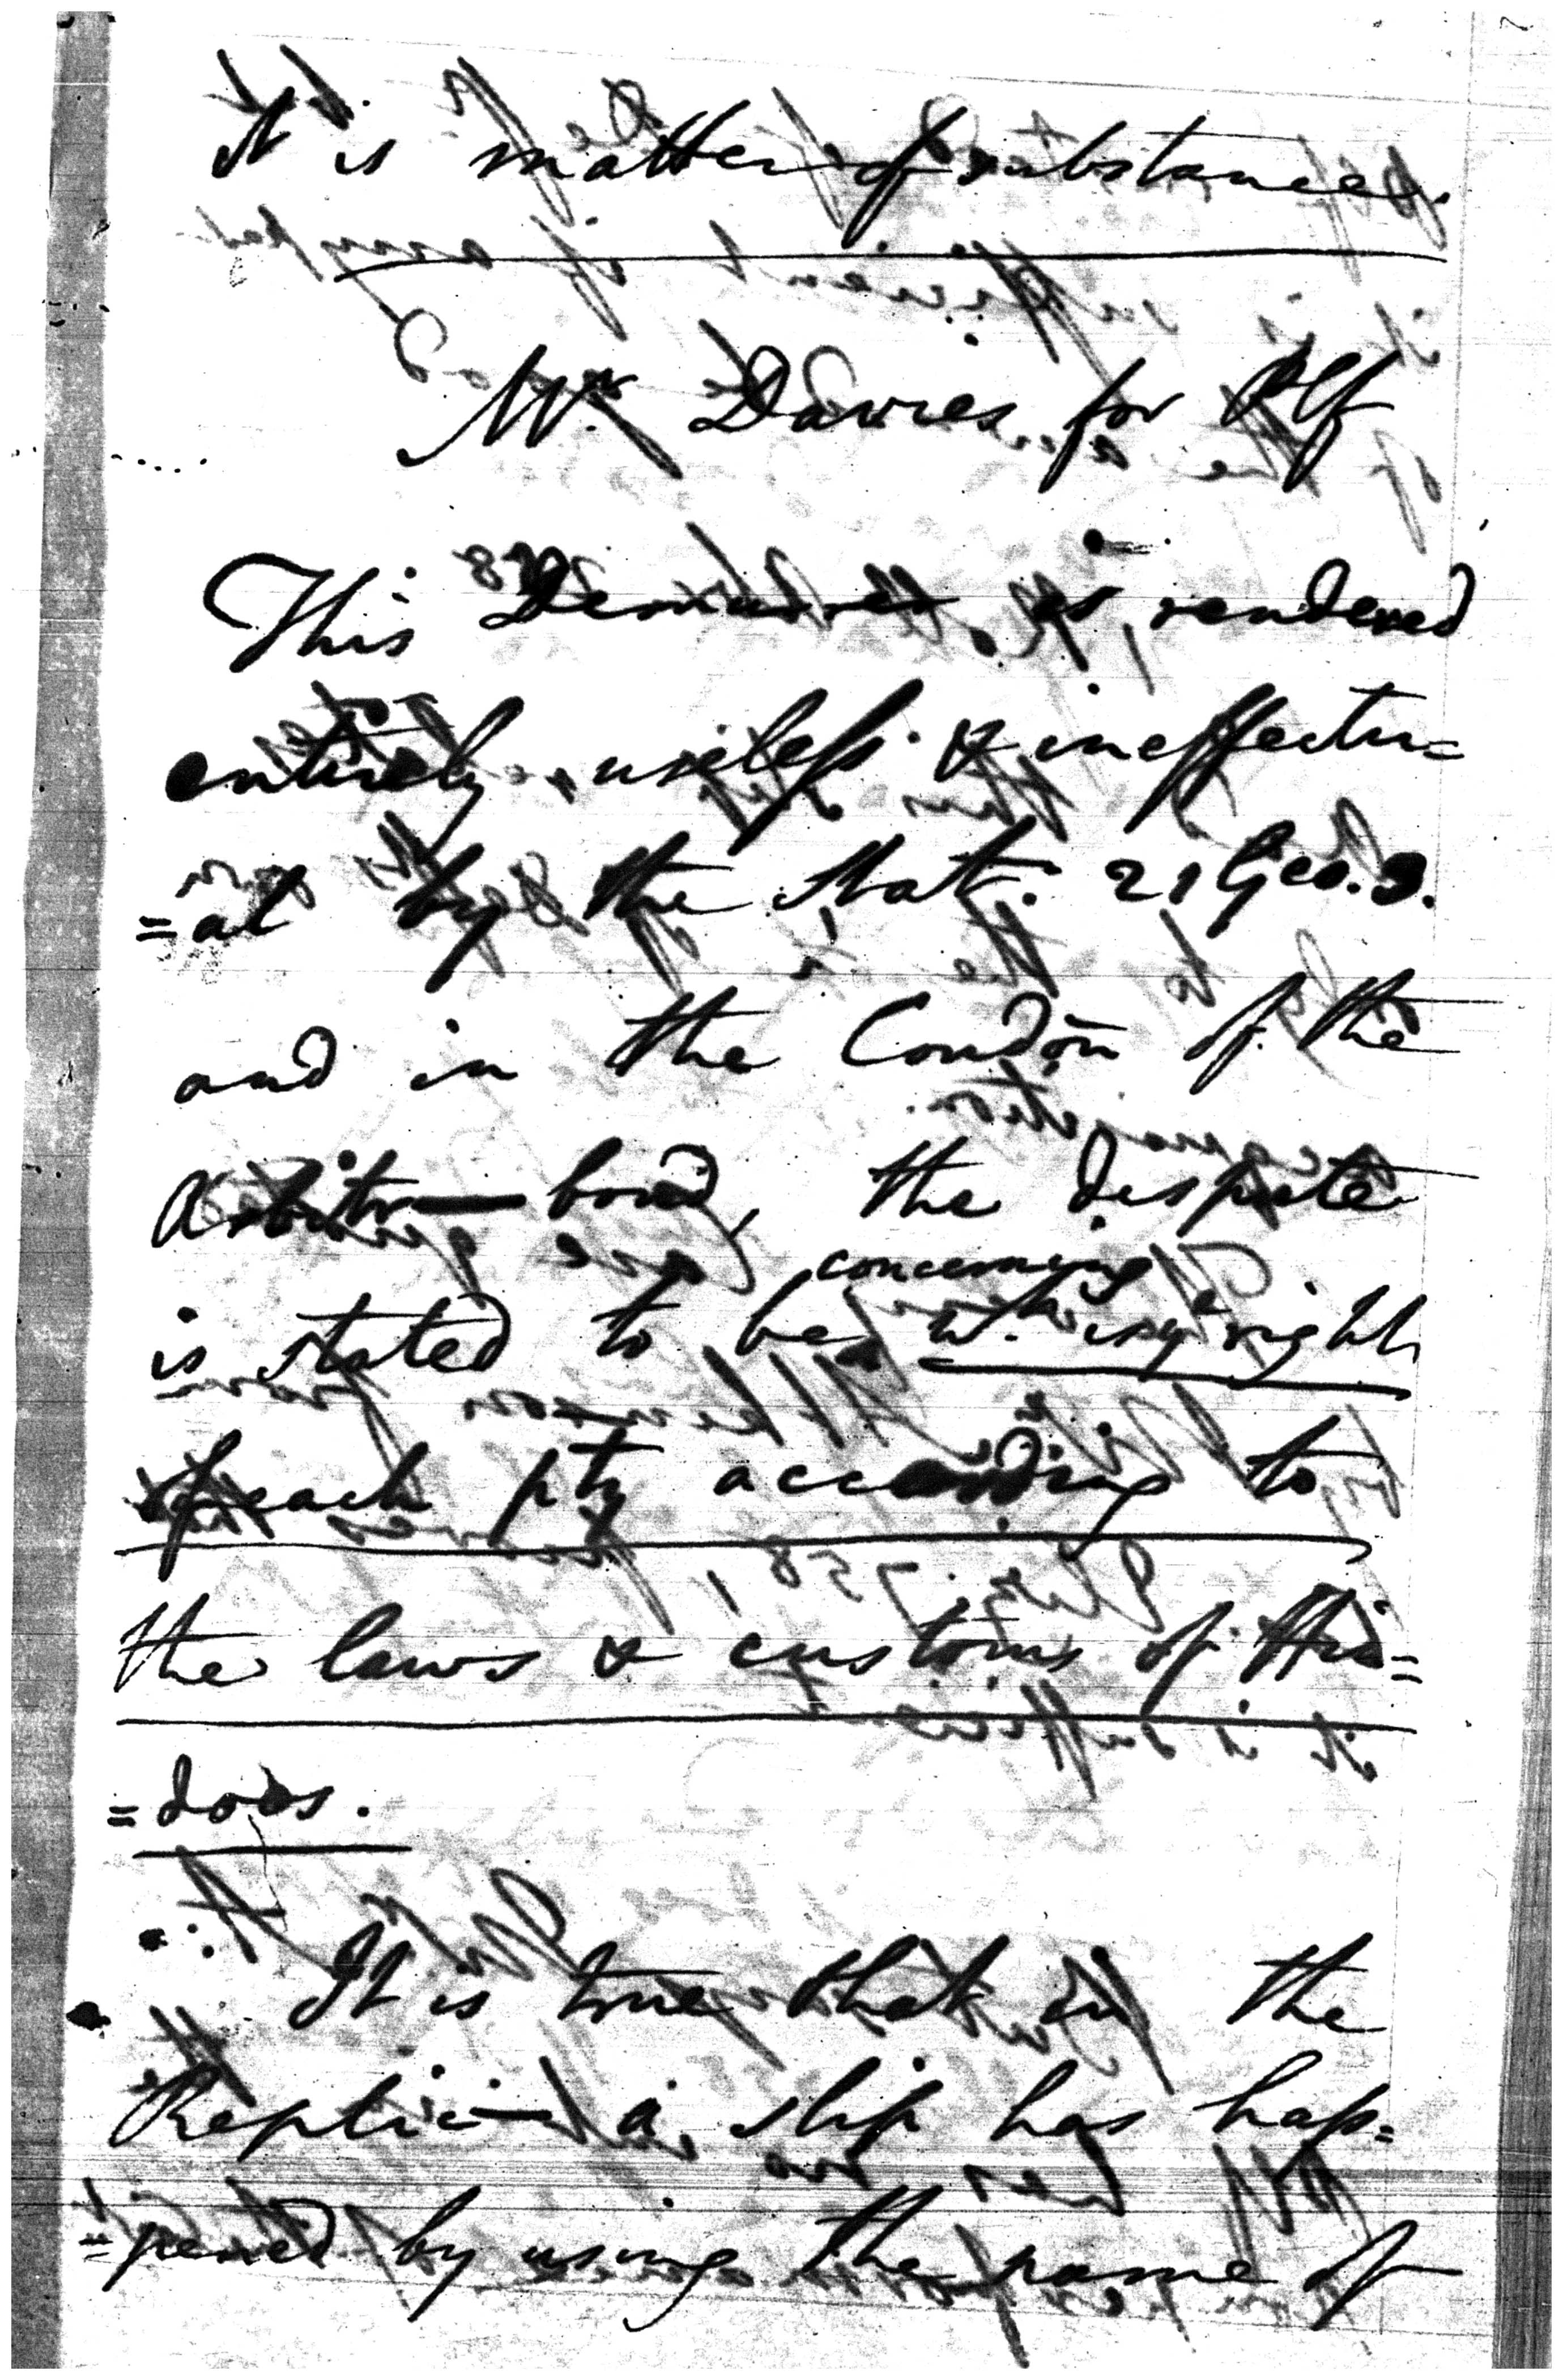 it is matter of substance.
Mr. Davies for Plf
This Demurrer is rendered
entirely useless & ineffectu=
=al by the Stat. 21 Geo. 3.
and in the Condōn of the
Arbitr— bond, the dispute
concerning
is stated to be right
of each pty according to
the laws & customs of Hin=
=doos.
It is true that in the
Replic— a slip has hap=
=pened by using the name of